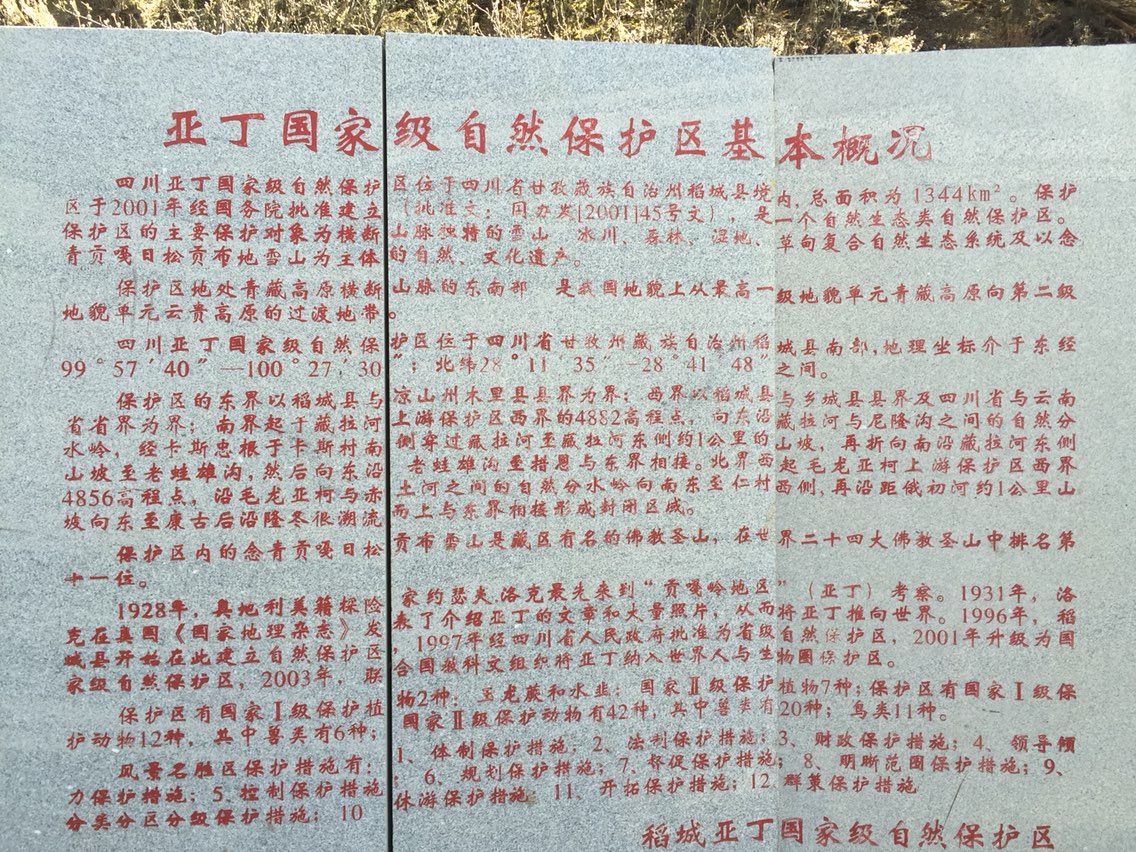 亚丁国家级自然保护区基本概况
四川亚丁国家级自然保护区位于四川省甘孜藏族自治州稻城县境内,总面积为1344km²。保护
区于2001年经国务院批准建立(批准文:国办发[2001]45号文),是一个自然生态类自然保护区。
保护区的主要保护对象为横断山脉独特的雪山 冰川、森林、湿地、草甸复合自然生态系统及以念
青贡嘎日松贡布地雪山为主体的自然、文化遗产。
保护区地处青藏高原横断山脉的东南部 是我国地貌上从最高一级地貌单元青藏高原向第二级
地貌单元云贵高原的过渡地带。
四川亚丁国家级自然保护区位于四川省甘孜州藏族自治州稻城县南部,地理坐标介于东经
99°57′40″—100°27,30″;北纬28°11′35″—28°41′48″之间。
保护区的东界以稻城县与凉山州木里县县界为界;西界以稻城县与乡城县县界及四川省与云南
省省界为界;南界起于藏拉河上游保护区西界的4882高程点,向东沿藏拉河与尼隆沟之间的自然分
水岭,经卡斯忠根于卡斯村南侧穿过藏拉河至藏拉河东侧约1公里的山坡,再折向南沿藏拉河东侧
山坡至老蛙雄沟,然后向东沿老蛙雄沟至措恩与东界相接。北界西起毛龙亚柯上游保护区西界
4856高程点,沿毛龙亚柯与赤土河之间的自然分水岭向南东至仁村西侧,再沿距俄初河约1公里山
坡向东至康古后沿隆冬很溯流而上与东界相接形成封闭区域。
保护区内的念青贡嘎日松贡布雪山是藏区有名的佛教圣山,在世界二十四大佛教圣山中排名第
十一位。
1928年,奥地利美籍探险家约瑟夫.洛克最先来到“贡嘎岭地区”(亚丁)考察。1931年,洛
克在美国《国家地理杂志》发表了介绍亚丁的文章和大量照片,从而将亚丁推向世界。1996年,稻
城县开始在此建立自然保护区,1997年经四川省人民政府批准为省级自然保护区,2001年升级为国
家级自然保护区,2003年,联合国教科文组织将亚丁纳入世界人与生物圈保护区。
保护区有国家Ⅰ级保护植物2种:玉龙蕨和水韭;国家Ⅱ级保护植物7种;保护区有国家Ⅰ级保
护动物12种,其中兽类有6种;国家Ⅱ级保护动物有42种,其中兽类有20种;鸟类11种。
风景名胜区保护措施有:1、体制保护措施;2、法制保护措施;3、财政保护措施;4、领导倾
力保护措施;5、控制保护措施;6、规划保护措施;7、督促保护措施;8、明晰范围保护措施;9、
分类分区分级保护措施;10休游保护措施 11、开拓保护措施;12.群策保护措施
稻城亚丁国家级自然保护区